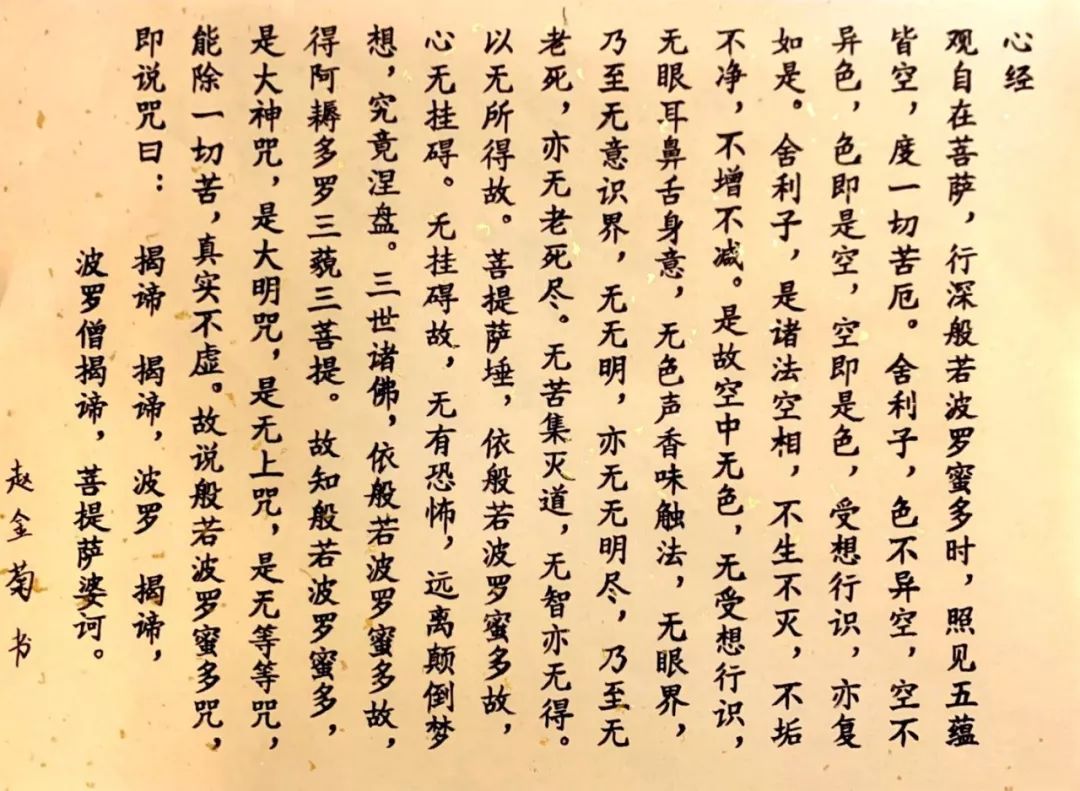 心经
观自在菩萨，行深般若波罗蜜多时，照见五蕴
皆空，度一切苦厄。舍利子，色不异空，空不
异色，色即是空，空即是色，受想行识，亦复
如是。舍利子，是诸法空相，不生不灭，不垢
不净，不增不减。是故空中无色，无受想行识，
无眼耳鼻舌身意，无色声香味触法，无眼界，
乃至无意识界，无无明，亦无无明尽，乃至无
老死，亦无老死尽。无苦集灭道，无智亦无得。
以无所得故。菩提萨埵，依般若波罗蜜多故，
心无挂碍。无挂碍故，无有恐怖，远离颠倒梦
想，究竟涅盘。三世诸佛，依般若波罗蜜多故，
得阿耨多罗三藐三菩提。故知般若波罗蜜多，
是大神咒，是大明咒，是无上咒，是无等等咒，
能除一切苦，真实不虚。故说般若波罗蜜多咒，
即说咒曰：揭谛 揭谛，波罗 揭谛，
波罗僧揭谛，菩提萨婆诃。
赵金菊书